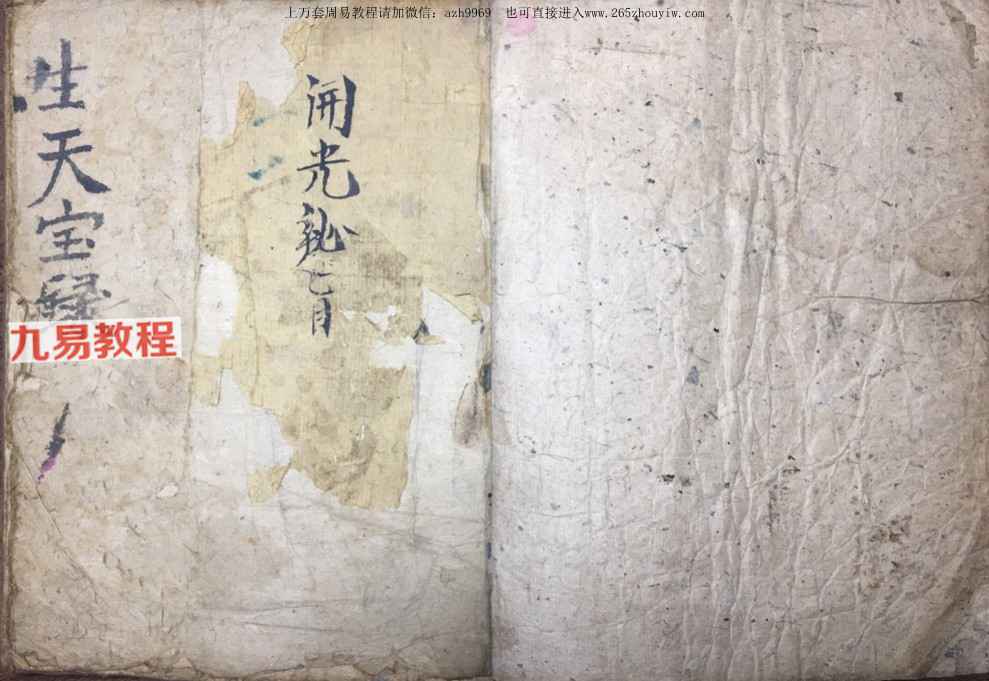 上万套周易教程请加微信：azh9969 也可直接进入www.265zhouyiw.com
開光秘七月
生天宝
九易教程